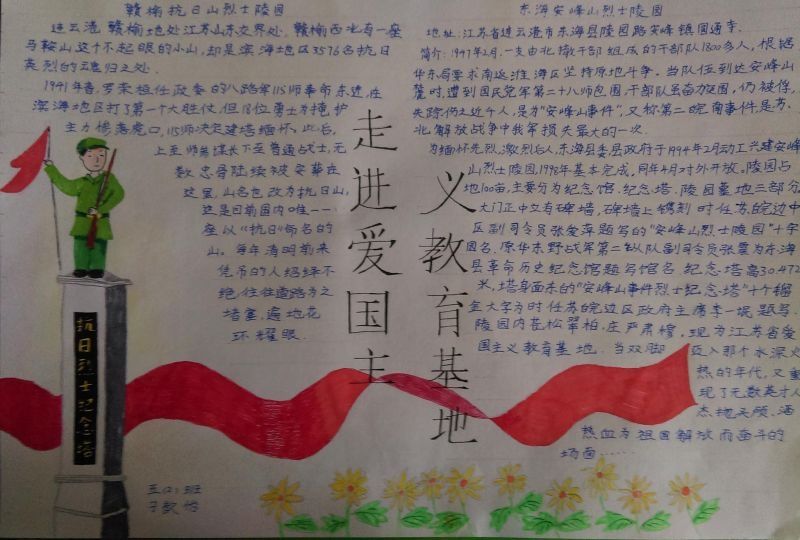 赣榆抗日山烈士陵园
连云港赣榆地处江苏山东交界处,赣榆西北有一座
马鞍山,这个不起眼的小山,却是滨海地区3576名抗日
英烈的魂归之处.
1941年春,罗荣桓任政委的八路军115师奉命东进,在
滨海地区打了第一个大胜仗,但18位勇士为掩护
主力惨落虎口,115师决定建塔缅怀,此后,
上至师参谋长下至普通战士,无
数忠骨陆续被安葬在
这里,山名也改为抗日山,
这是目前国内唯一一
座以“抗日”命名的
山。每年清明前来
凭吊的人络绎不
绝,往往道路为之
墙塞,遍地花
环耀眼.
走进爱国主
义教育基地
东海安峰山烈士陵园
地址:江苏省连云港市东海县陵园路安峰镇
简介:1947年2月,一支由北撤干部组成的干部队1800多人,根据
华东局要求南返淮海区坚持原地斗争。当队伍到达安峰山
麓时,遭到国民党军第二十八师包围,干部队虽奋力突围,仍被俘,
失踪伤亡近千人,是为“安峰山事件”,又称第二皖南事件,是苏、
北解放战争中我军损失最大的一次.
为缅怀先烈,激烈后人,东海县委县政府于1994年2月动工兴建安峰
山烈士陵园,1998年基本完成,同年4月对外开放。陵园占
地100亩,主要分为纪念馆.纪念塔.陵园墓地三部分,
大门正中立有碑墙,碑墙上镌刻时任苏皖边中
区副司令员张爱萍题写的“安峰山烈士陵园”十字
园名.原华东野战军第二纵队副司令员张震为东海
县革命历史纪念馆题写馆名.纪念塔高30.472
米,塔身面东的“安峰山事件烈士纪念塔”十个镏
金大字为时任苏皖边区政府主席李一氓题写.
陵园内苍松翠柏,庄严肃穆,现为江苏省爱
国主义教育基地.当双脚迈入那个水深火
热的年代,又重
现了无数英才人
杰抛头颅,洒
热血为祖国解放而奋斗的
场面……
抗日烈士纪念塔
五(2)班